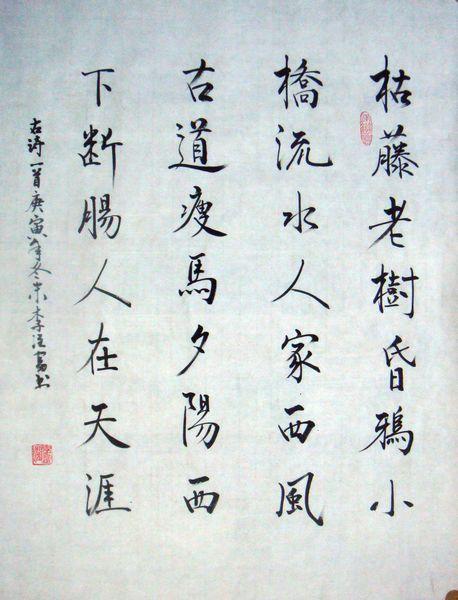 枯藤老樹昏鴉小
橋流水人家西風
古道瘦馬夕陽西
下断腸人在天涯
古诗一首庚寅年冬末李书